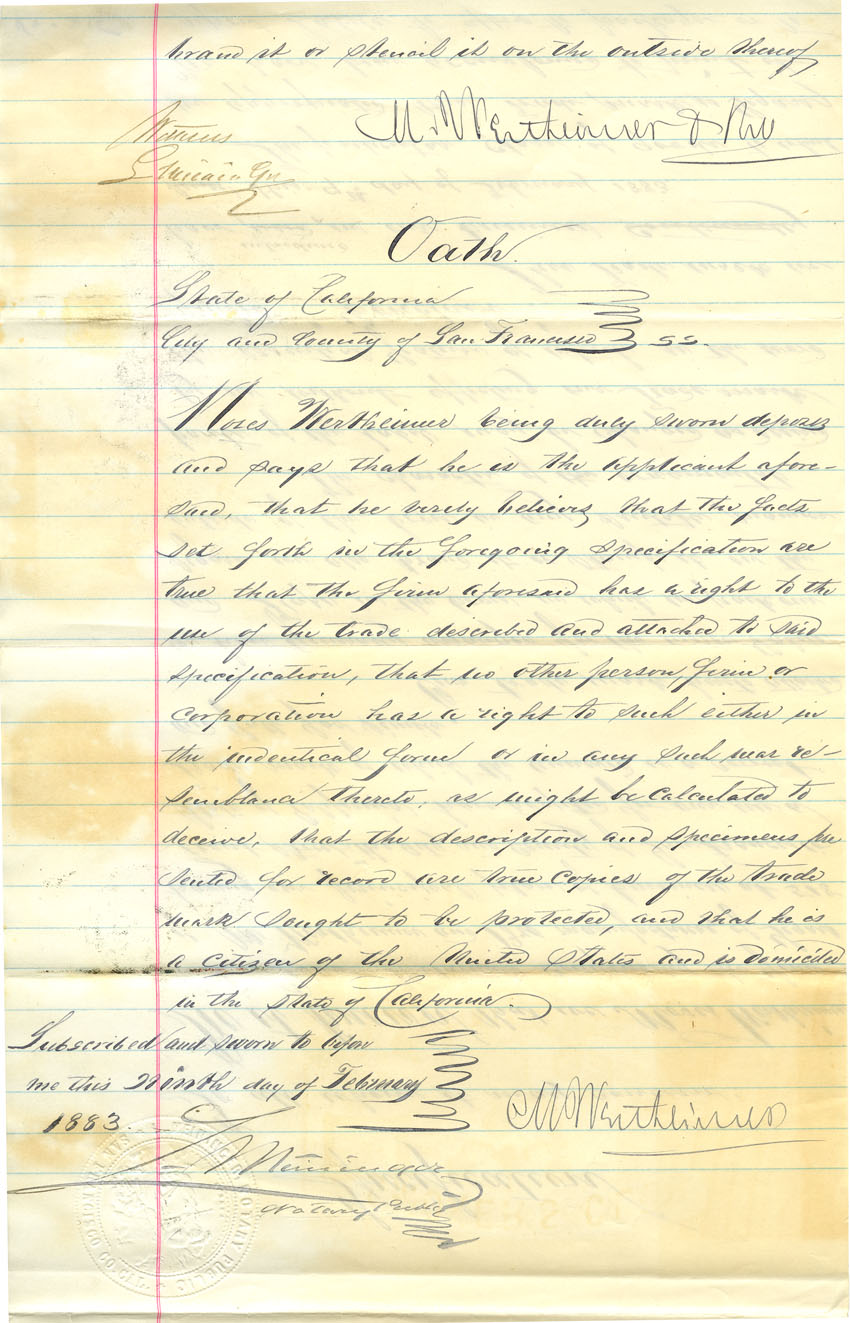 brand it or stencil it on the outside thereof
M. Wertheimer & Bro
Witness
Oath.
State of California
City and County of San Francisco } ss.
Moses Wertheimer being duly sworn deposes
and says that he is the applicant afore-
said, that he verily believes that the facts
set forth in the foregoing specification are
true that the firm aforesaid has a right to the
use of the trade described and attached to said
specification, that no other person, firm or
corporation has a right to such either in
the indentical form or in any such near re-
semblance thereto, as might be calculated to
deceive, that the description and specimens pre
sented for record are true copies of the trade
mark sought to be protected, and that he is
a citizen of the United States and is domiciled
in the state of California.
Subscribed and sworn to before
me this Ninth day of February
1883.
M Wertheimer
Notary Public
NOTARY PUBLIC
SAN FRANCISCO CO. CAL.